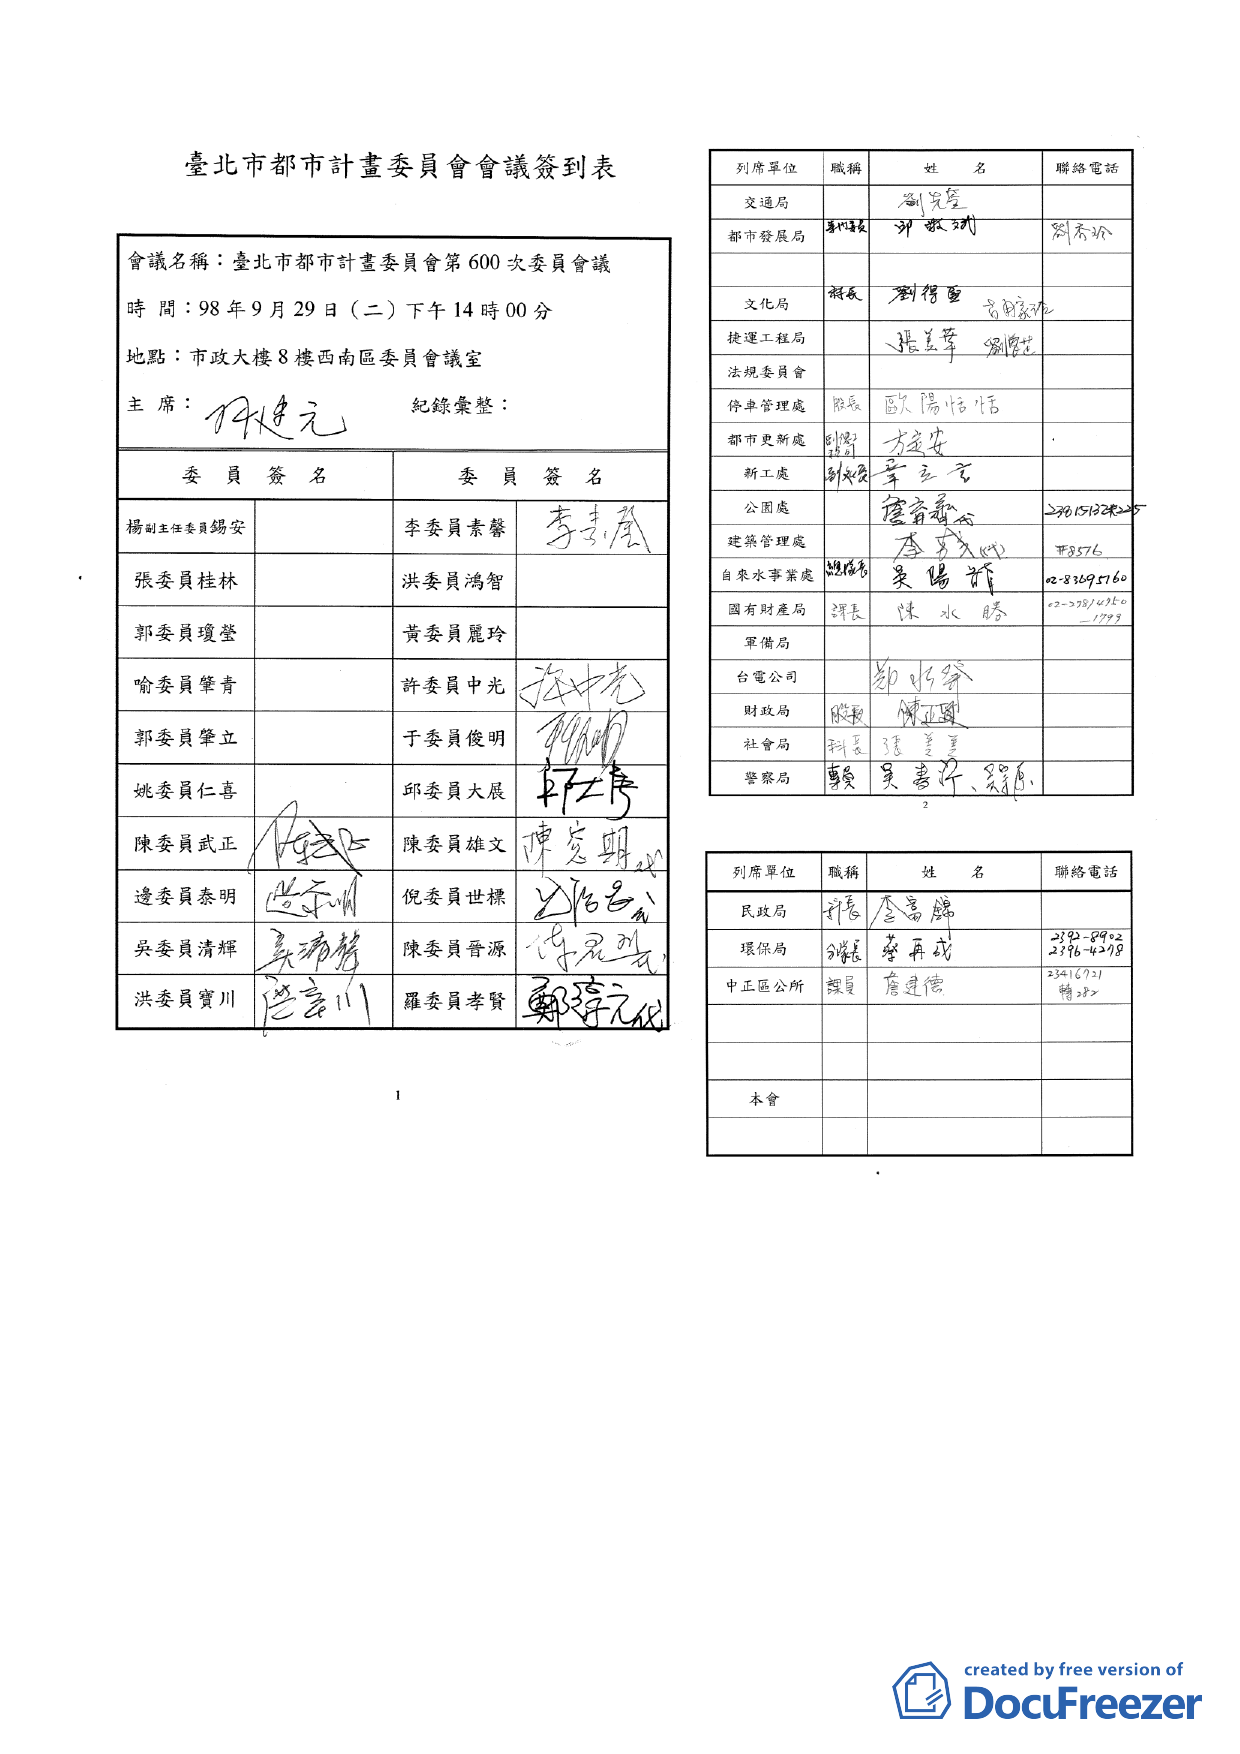 臺北市都市計畫委員會會議簽到表
會議名稱：臺北市都市計畫委員會第600次委員會議
時 間：98年9月29日（二）下午14時00分
地點：市政大樓8樓西南區委員會議室
主 席： 紀錄彙整：
委 員 簽 名 委 員 簽 名
楊副主任委員錫安 李委員素馨 李素馨
張委員桂林 洪委員鴻智
郭委員瓊瑩 黃委員麗玲
喻委員肇青 許委員中光 許中光
郭委員肇立 于委員俊明
姚委員仁喜 邱委員大展 邱大展
陳委員武正 陳武正 陳委員雄文
邊委員泰明 邊泰明 倪委員世標
吳委員清輝 吳清輝 陳委員晉源
洪委員寶川 洪寶川 羅委員孝賢 鄭淳元代
1
列席單位 職稱 姓 名 聯絡電話
交通局
都市發展局 專門委員 邱敬斌 劉秀玲
文化局 科長 劉得堅
捷運工程局 張美華
法規委員會
停車管理處 股長 歐陽恬恬
都市更新處 方定安
新工處 章立言
公園處 代
建築管理處 (代) #8576
自來水事業處 總隊長 吳陽龍 02-83695160
國有財產局 課長 陳水勝 02-27814750
-1799
軍備局
台電公司 鄭
財政局 股長 陳正
社會局 科長 張美美
警察局 專員 吳書
2
列席單位 職稱 姓 名 聯絡電話
民政局 科長 李富錦
環保局 分隊長 蔡再成 2392-8902
2396-4278
中正區公所 課員 詹建德 23416721
轉282
本會
created by free version of
DocuFreezer